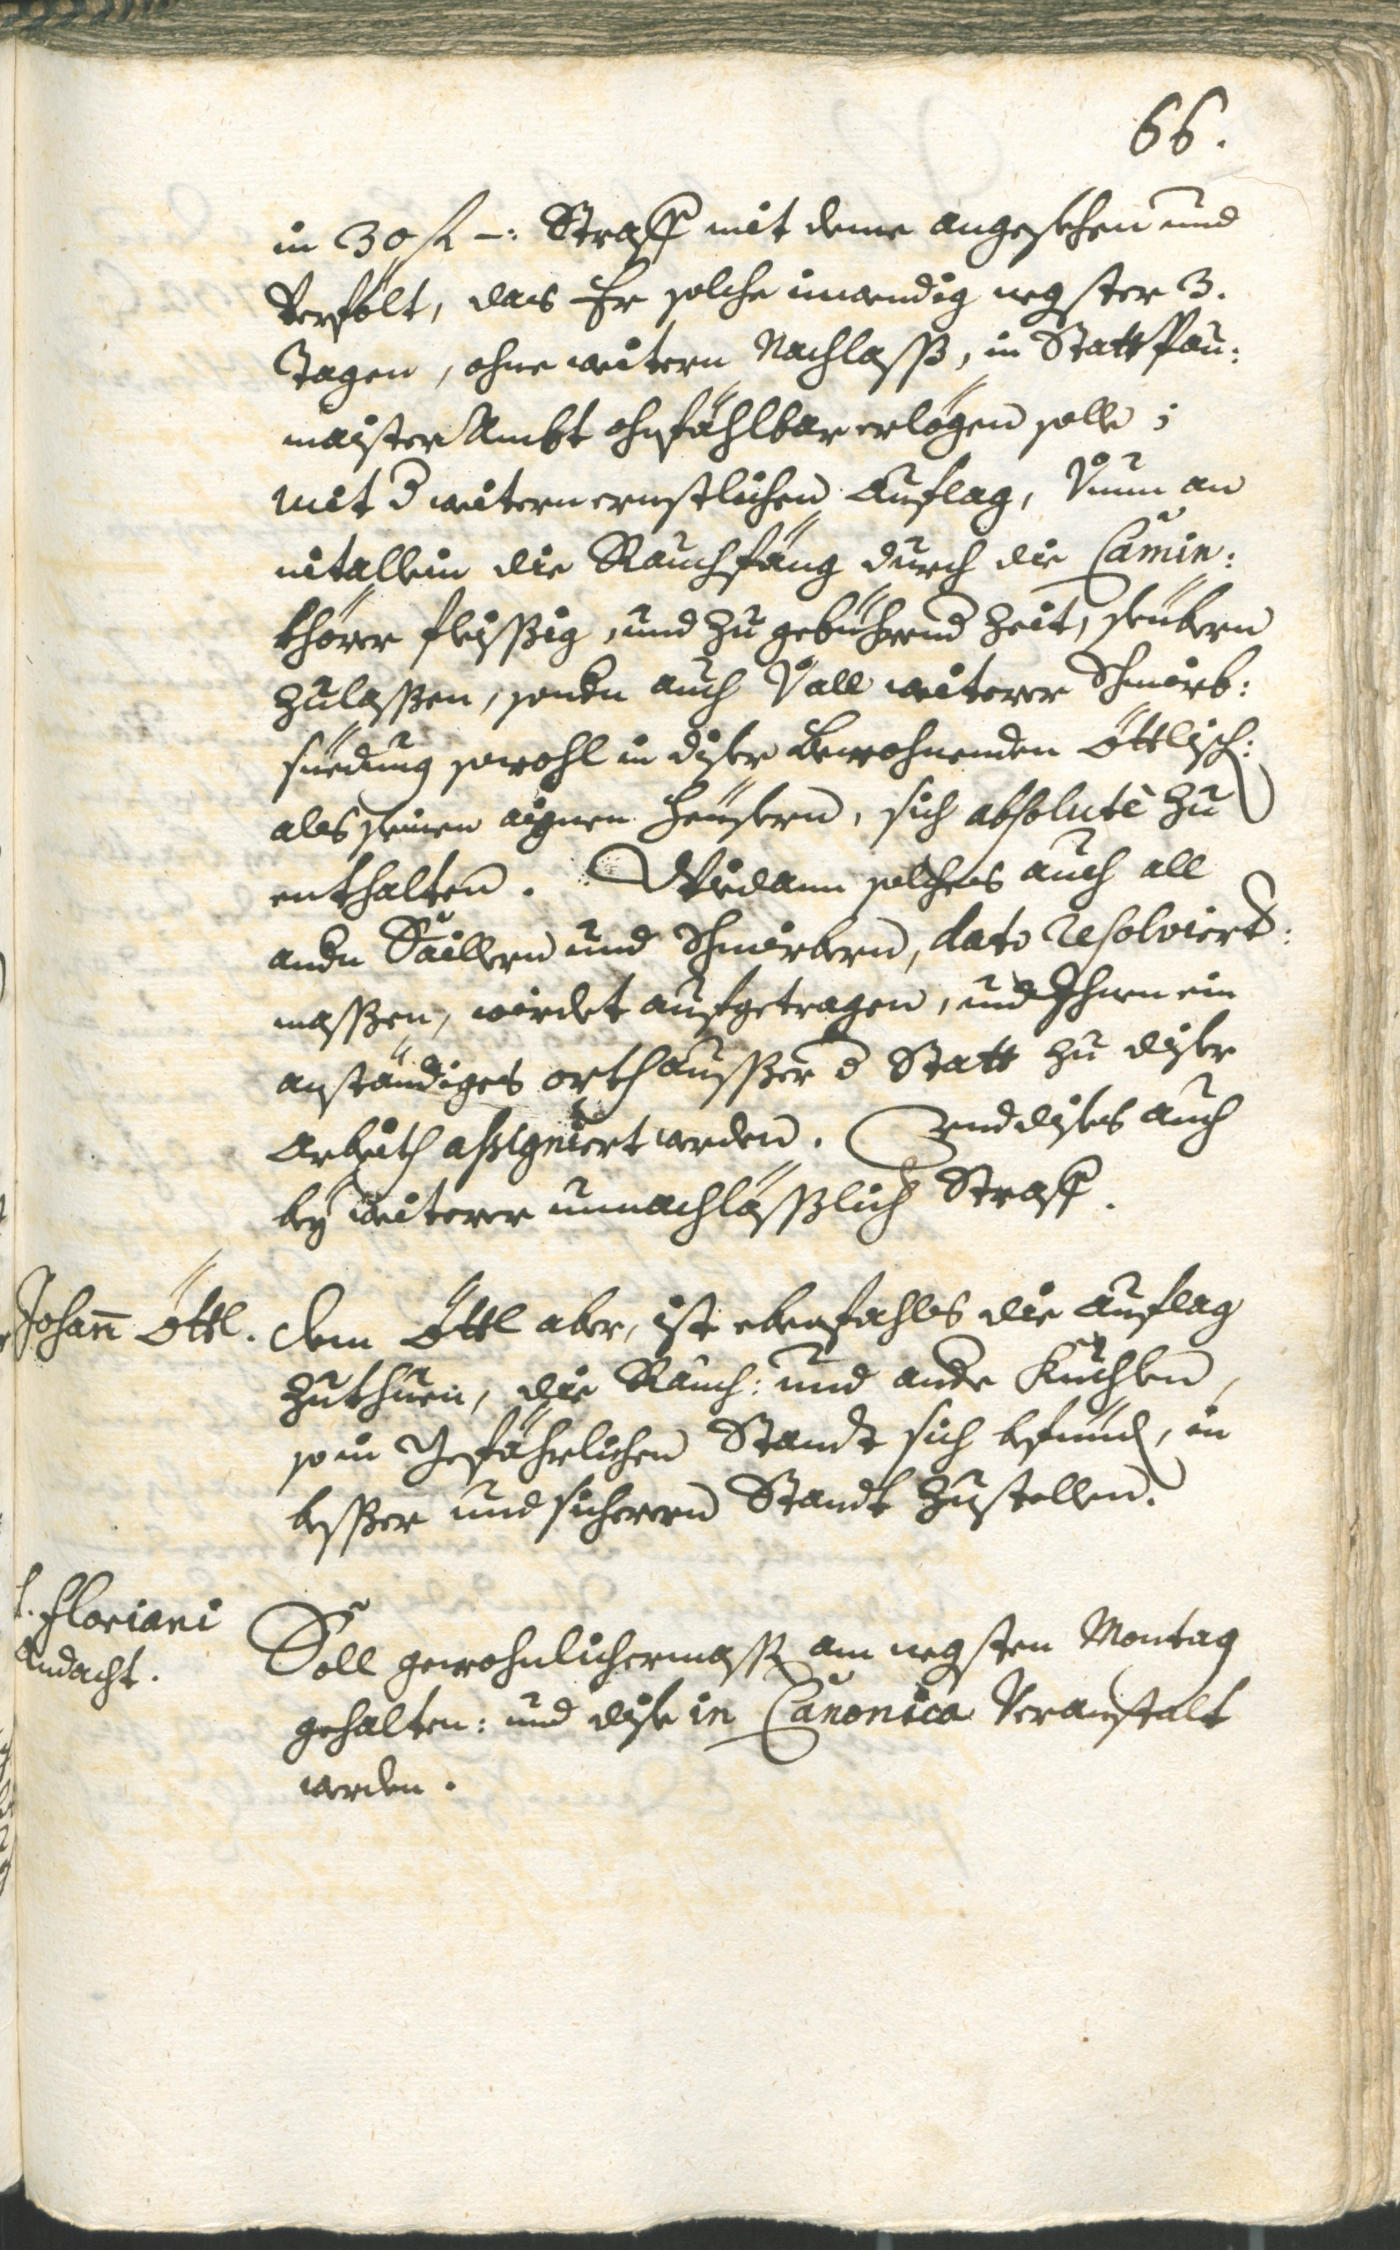 66.
in 30 fl -: Straff mit deme angesehen und
Verfölt, das Er solche inwendig negster 3.
Tagen, ohne weitern Nachlaß, in Statt Pau:
maister Ambt ohnfählbar erlögen solle;
mit d weitern ernstlichen Auflag,
nit allein die Rauchfäng durch die Camin:
khörer fleissig, und zu gebührend Zeit, seubern
zulassen, sondn auch all weiterer Schmirb:
südung sowohl in diser bewohnenden Öttlisch:
als seinen aignen Heüsern, sich absolutè zu
enthalten. Wie dann solches auch all
andn Saillern und Schmirbern, dato resolviert:
massen, würdet aufgetragen, und Ihnen ein
anständiges orth ausser d Statt zu diser
Arbeith assigniert werden. Und dises auch
bey weiterer unnachläßlich Straff.
Johann Öttl. dem Öttl aber, ist ebenfahls die Auflag
zuthuen, die Rauch: und andr Kuchlen,
so in Gefährlichen Standt sich befündn, in
besser und sicherern Standt zustellen.
S. Floriani
Andacht.
Soll gewohnlichermassn am negsten Montag
gehalten: und dise in Canonica Veranstalt
werden.